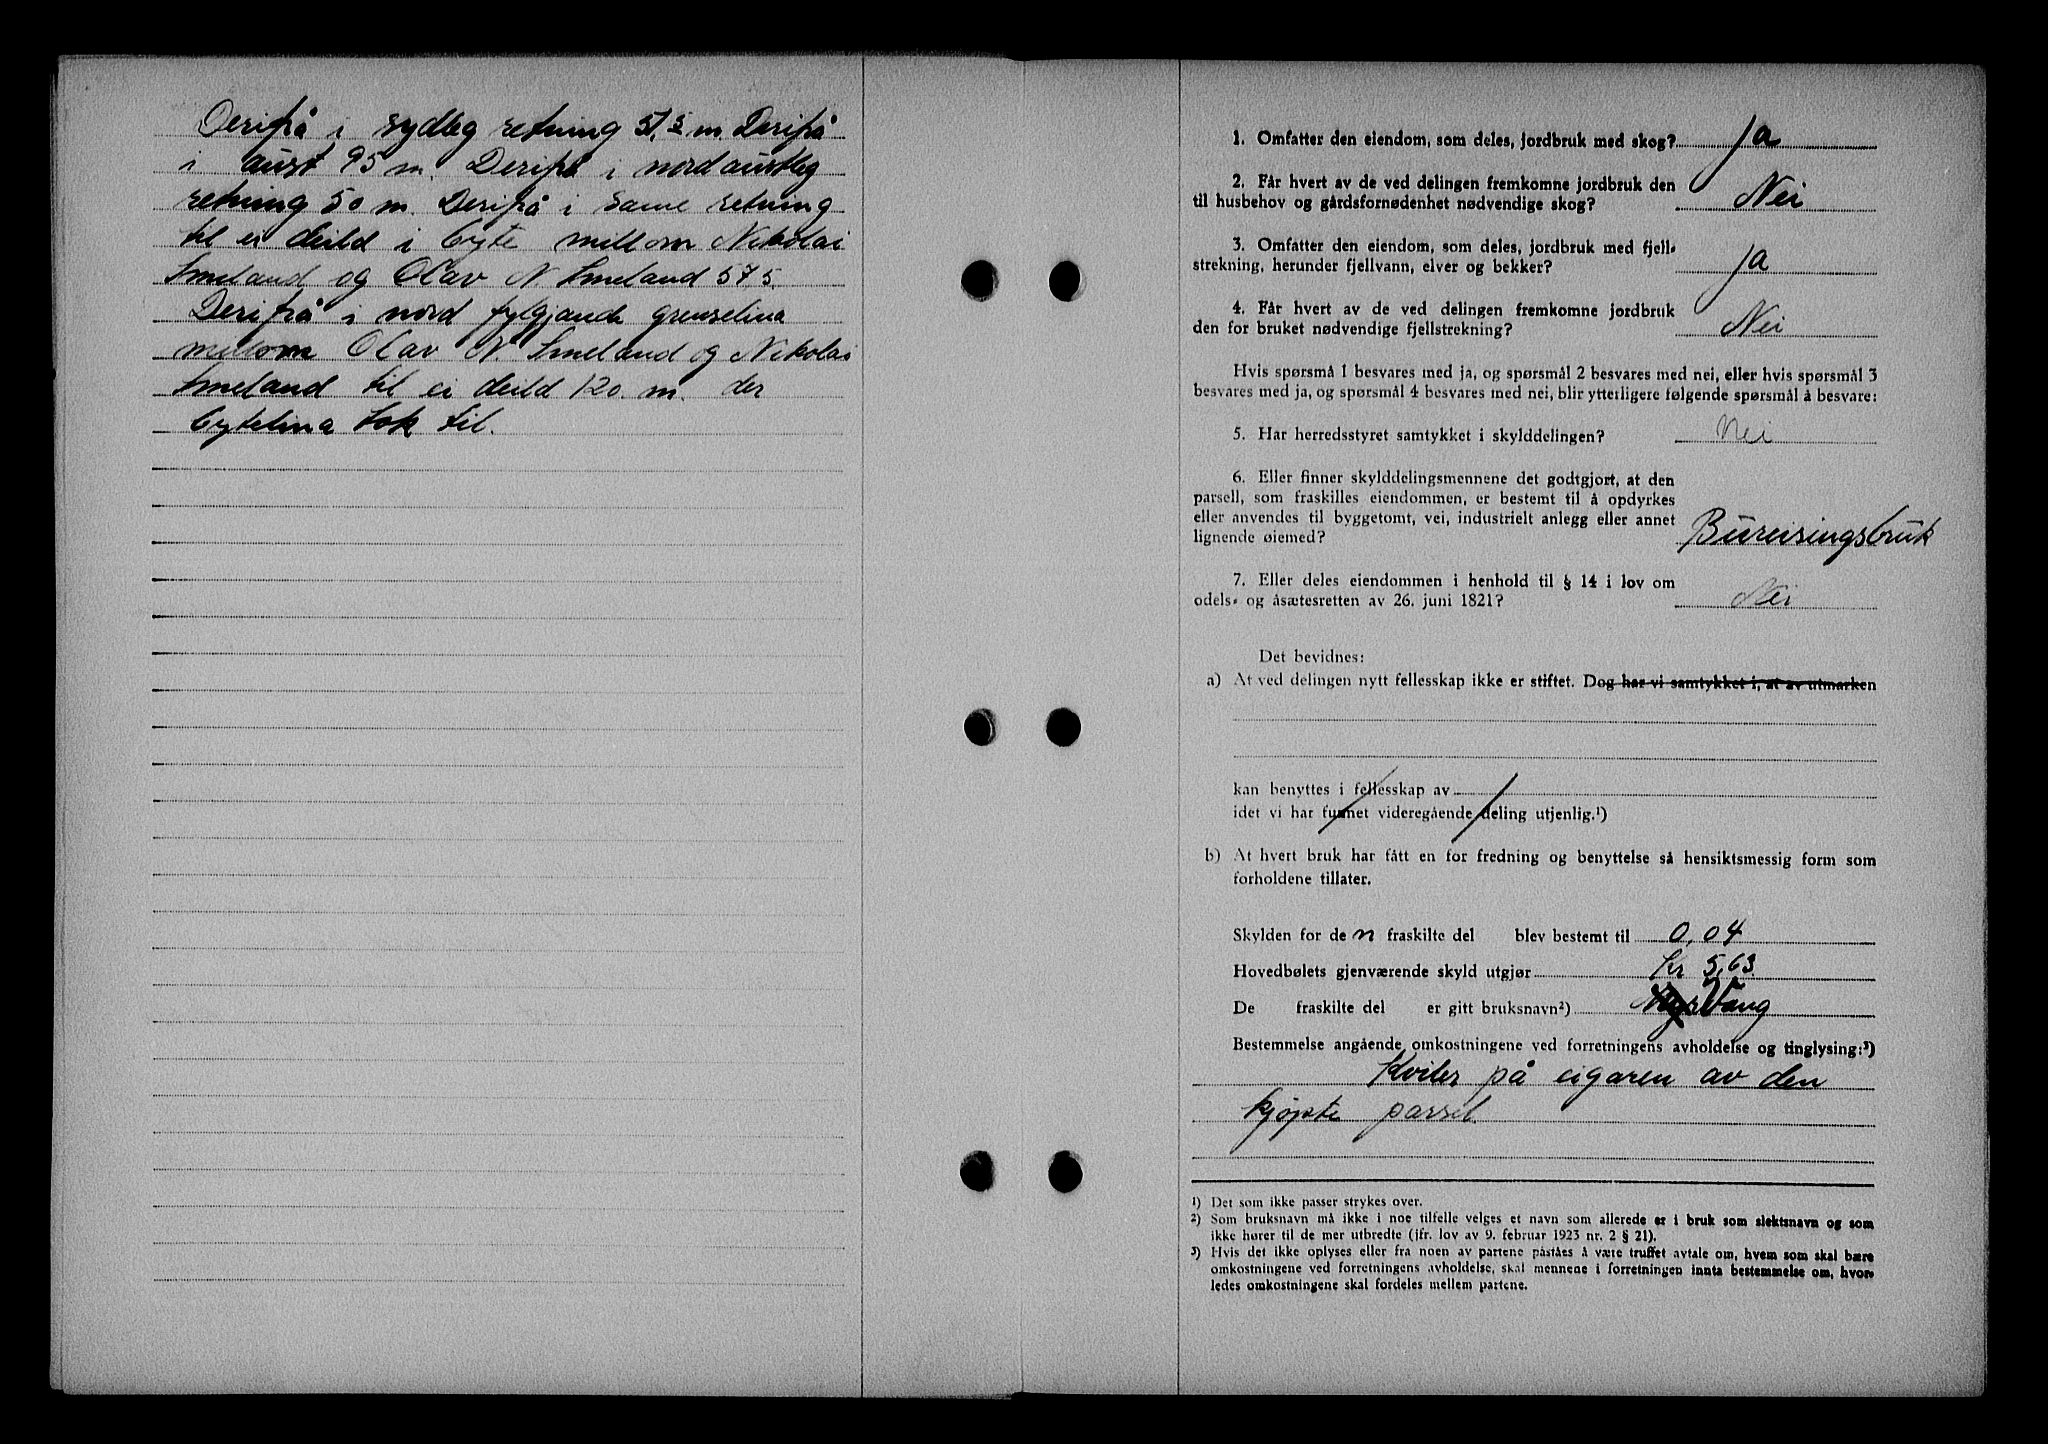 Derifrå i sydleg retning 51,5 m. Derifrå
i aust 95 m. Derifrå i nordaustleg
retning 50 m. Derifrå i same retning
til ei deild i byte millom Nikolai
Smeland og Olav N. Smeland 575.
Derifrå i nord fylgjande grenselina
millom Olav N. Smeland og Nikolai
Smeland til ei deild 120. m. der
bytelina tok til.
1. Omfatter den eiendom, som deles, jordbruk med skog? Ja
2. Får hvert av de ved delingen fremkomne jordbruk den
til husbehov og gårdsfornødenhet nødvendige skog? Nei
3. Omfatter den eiendom, som deles, jordbruk med fjell-
strekning, herunder fjellvann, elver og bekker? ja
4. Får hvert av de ved delingen fremkomne jordbruk
den for bruket nødvendige fjellstrekning? Nei
Hvis spørsmål 1 besvares med ja, og spørsmål 2 besvares med nei, eller hvis spørsmål 3
besvares med ja, og spørsmål 4 besvares med nei, blir ytterligere følgende spørsmål å besvare:
5. Har herredsstyret samtykket i skylddelingen? Nei
6. Eller finner skylddelingsmennene det godtgjort, at den
parsell, som fraskilles eiendommen, er bestemt til å opdyrkes
eller anvendes til byggetomt, vei, industrielt anlegg eller annet
lignende øiemed? Bureisingsbruk
7. Eller deles eiendommen i henhold til § 14 i lov om
odels- og åsætesretten av 26. juni 1821? Nei
Det bevidnes:
a) At ved delingen nytt fellesskap ikke er stiftet. Dog har vi samtykket i, at av utmarken
kan benyttes i fellesskap av
idet vi har funnet videregående deling utjenlig.¹)
b) At hvert bruk har fått en for fredning og benyttelse så hensiktsmessig form som
forholdene tillater.
Skylden for de n fraskilte del blev bestemt til 0,04
Hovedbølets gjenværende skyld utgjør Kr 5,63
De fraskilte del er gitt bruksnavn²) Vang
Bestemmelse angående omkostningene ved forretningens avholdelse og tinglysing:³)
Kviler på eigaren av den
kjøpte parsel.
¹) Det som ikke passer strykes over.
²) Som bruksnavn må ikke i noe tilfelle velges et navn som allerede er i bruk som slektsnavn og som
ikke hører til de mer utbredte (jfr. lov av 9. februar 1923 nr. 2 § 21).
³) Hvis det ikke oplyses eller fra noen av partene påståes å være truffet avtale om, hvem som skal bære
omkostningene ved forretningens avholdelse, skal mennene i forretningen innta bestemmelse om, hvor-
ledes omkostningene skal fordeles mellem partene.